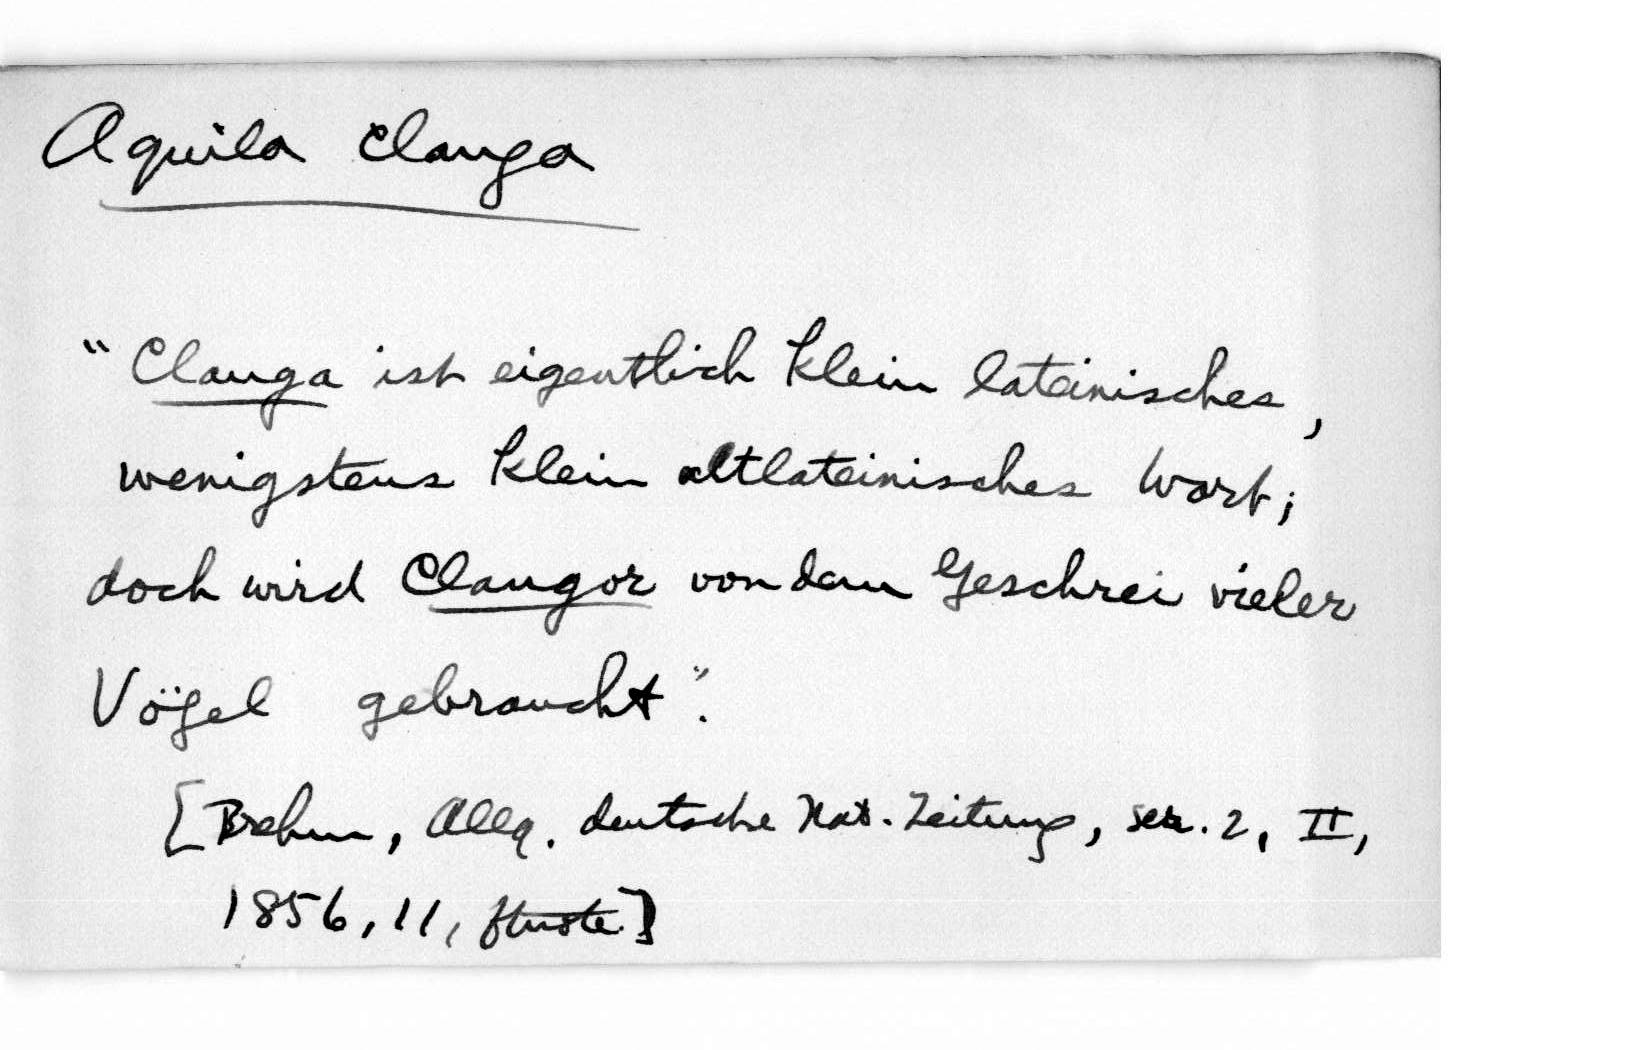 Aquila clanga
"Clanga ist eigentlich klein lateinisches,
wenigstens klein altlateinisches Wort;
doch wird Clangor von dem Geschrei vieler
Vögel gebraucht".
[Brehm, Allg. deutsche Nat. Zeitung, ser. 2, II,
1856, 11, ftnote]